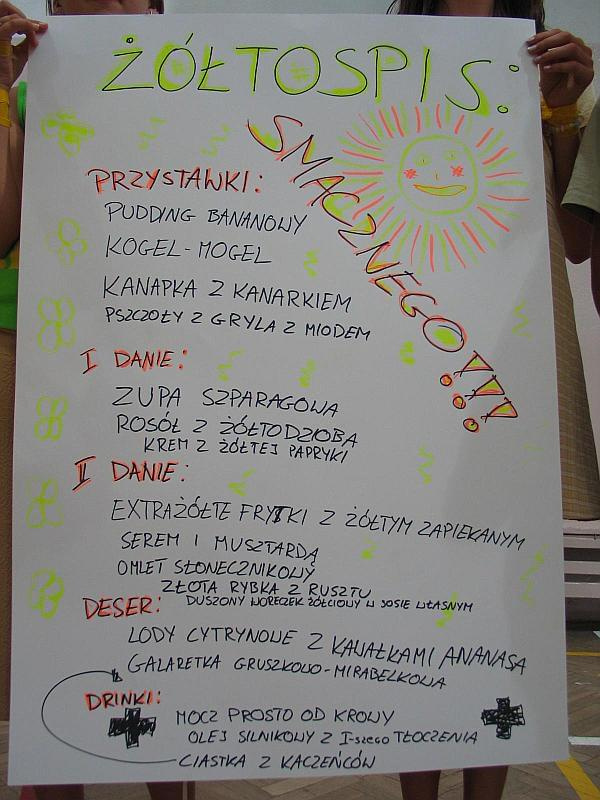 ŻÓŁTOSPIS:
SMACZNEGO!!!
PRZYSTAWKI:
PUDDING BANANOWY
KOGEL-MOGEL
KANAPKA Z KANARKIEM
PSZCZOŁY Z GRYLA Z MIODEM
I DANIE:
ZUPA SZPARAGOWA
ROSÓŁ Z ŻÓŁTODZIOBA
KREM Z ŻÓŁTEJ PAPRYKI
II DANIE:
EXTRAŻÓŁTE FRYTKI Z ŻÓŁTYM ZAPIEKANYM
SEREM I MUSZTARDĄ
OMLET SŁONECZNIKOWY
ZŁOTA RYBKA Z RUSZTU
DUSZONY WORECZEK ŻÓŁCIOWY W SOSIE WŁASNYM
DESER:
LODY CYTRYNOWE Z KAWAŁKAMI ANANASA
GALARETKA GRUSZKOWO-MIRABELKOWA
DRINKI:
MOCZ PROSTO OD KROWY
OLEJ SILNIKOWY Z I-szego TŁOCZENIA
CIASTKA Z KACZEŃCÓW